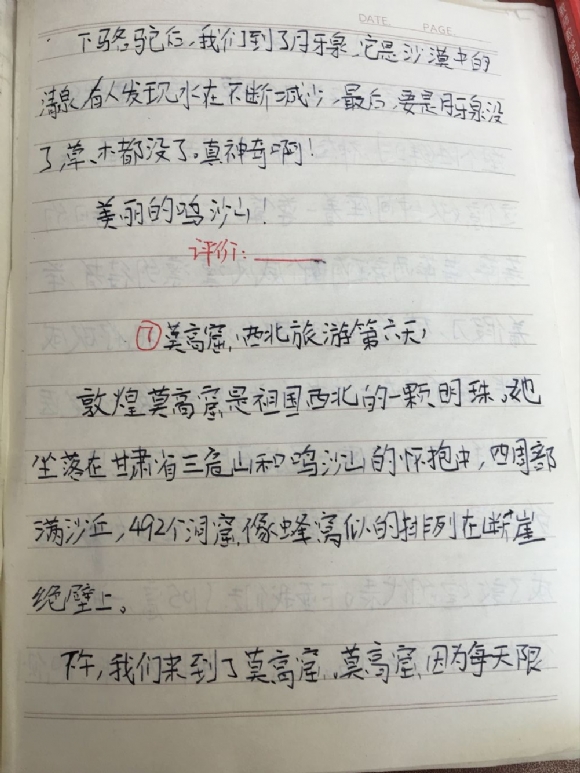 DATE PAGE
下骆驼后,我们到了月牙泉,它是沙漠中的
清泉,有人发现水在不断减少,最后,要是月牙泉没
了,草、木都没了。真神奇啊!
美丽的鸣沙山!
评价:
①莫高窟,(西北旅游第六天)
敦煌莫高窟是祖国西北的一颗明珠。她
坐落在甘肃省三危山和鸣沙山的怀抱中,四周部
满沙丘,492个洞窟像蜂窝似的排列在断崖
绝壁上。
下午,我们来到了莫高窟,莫高窟因为每天限